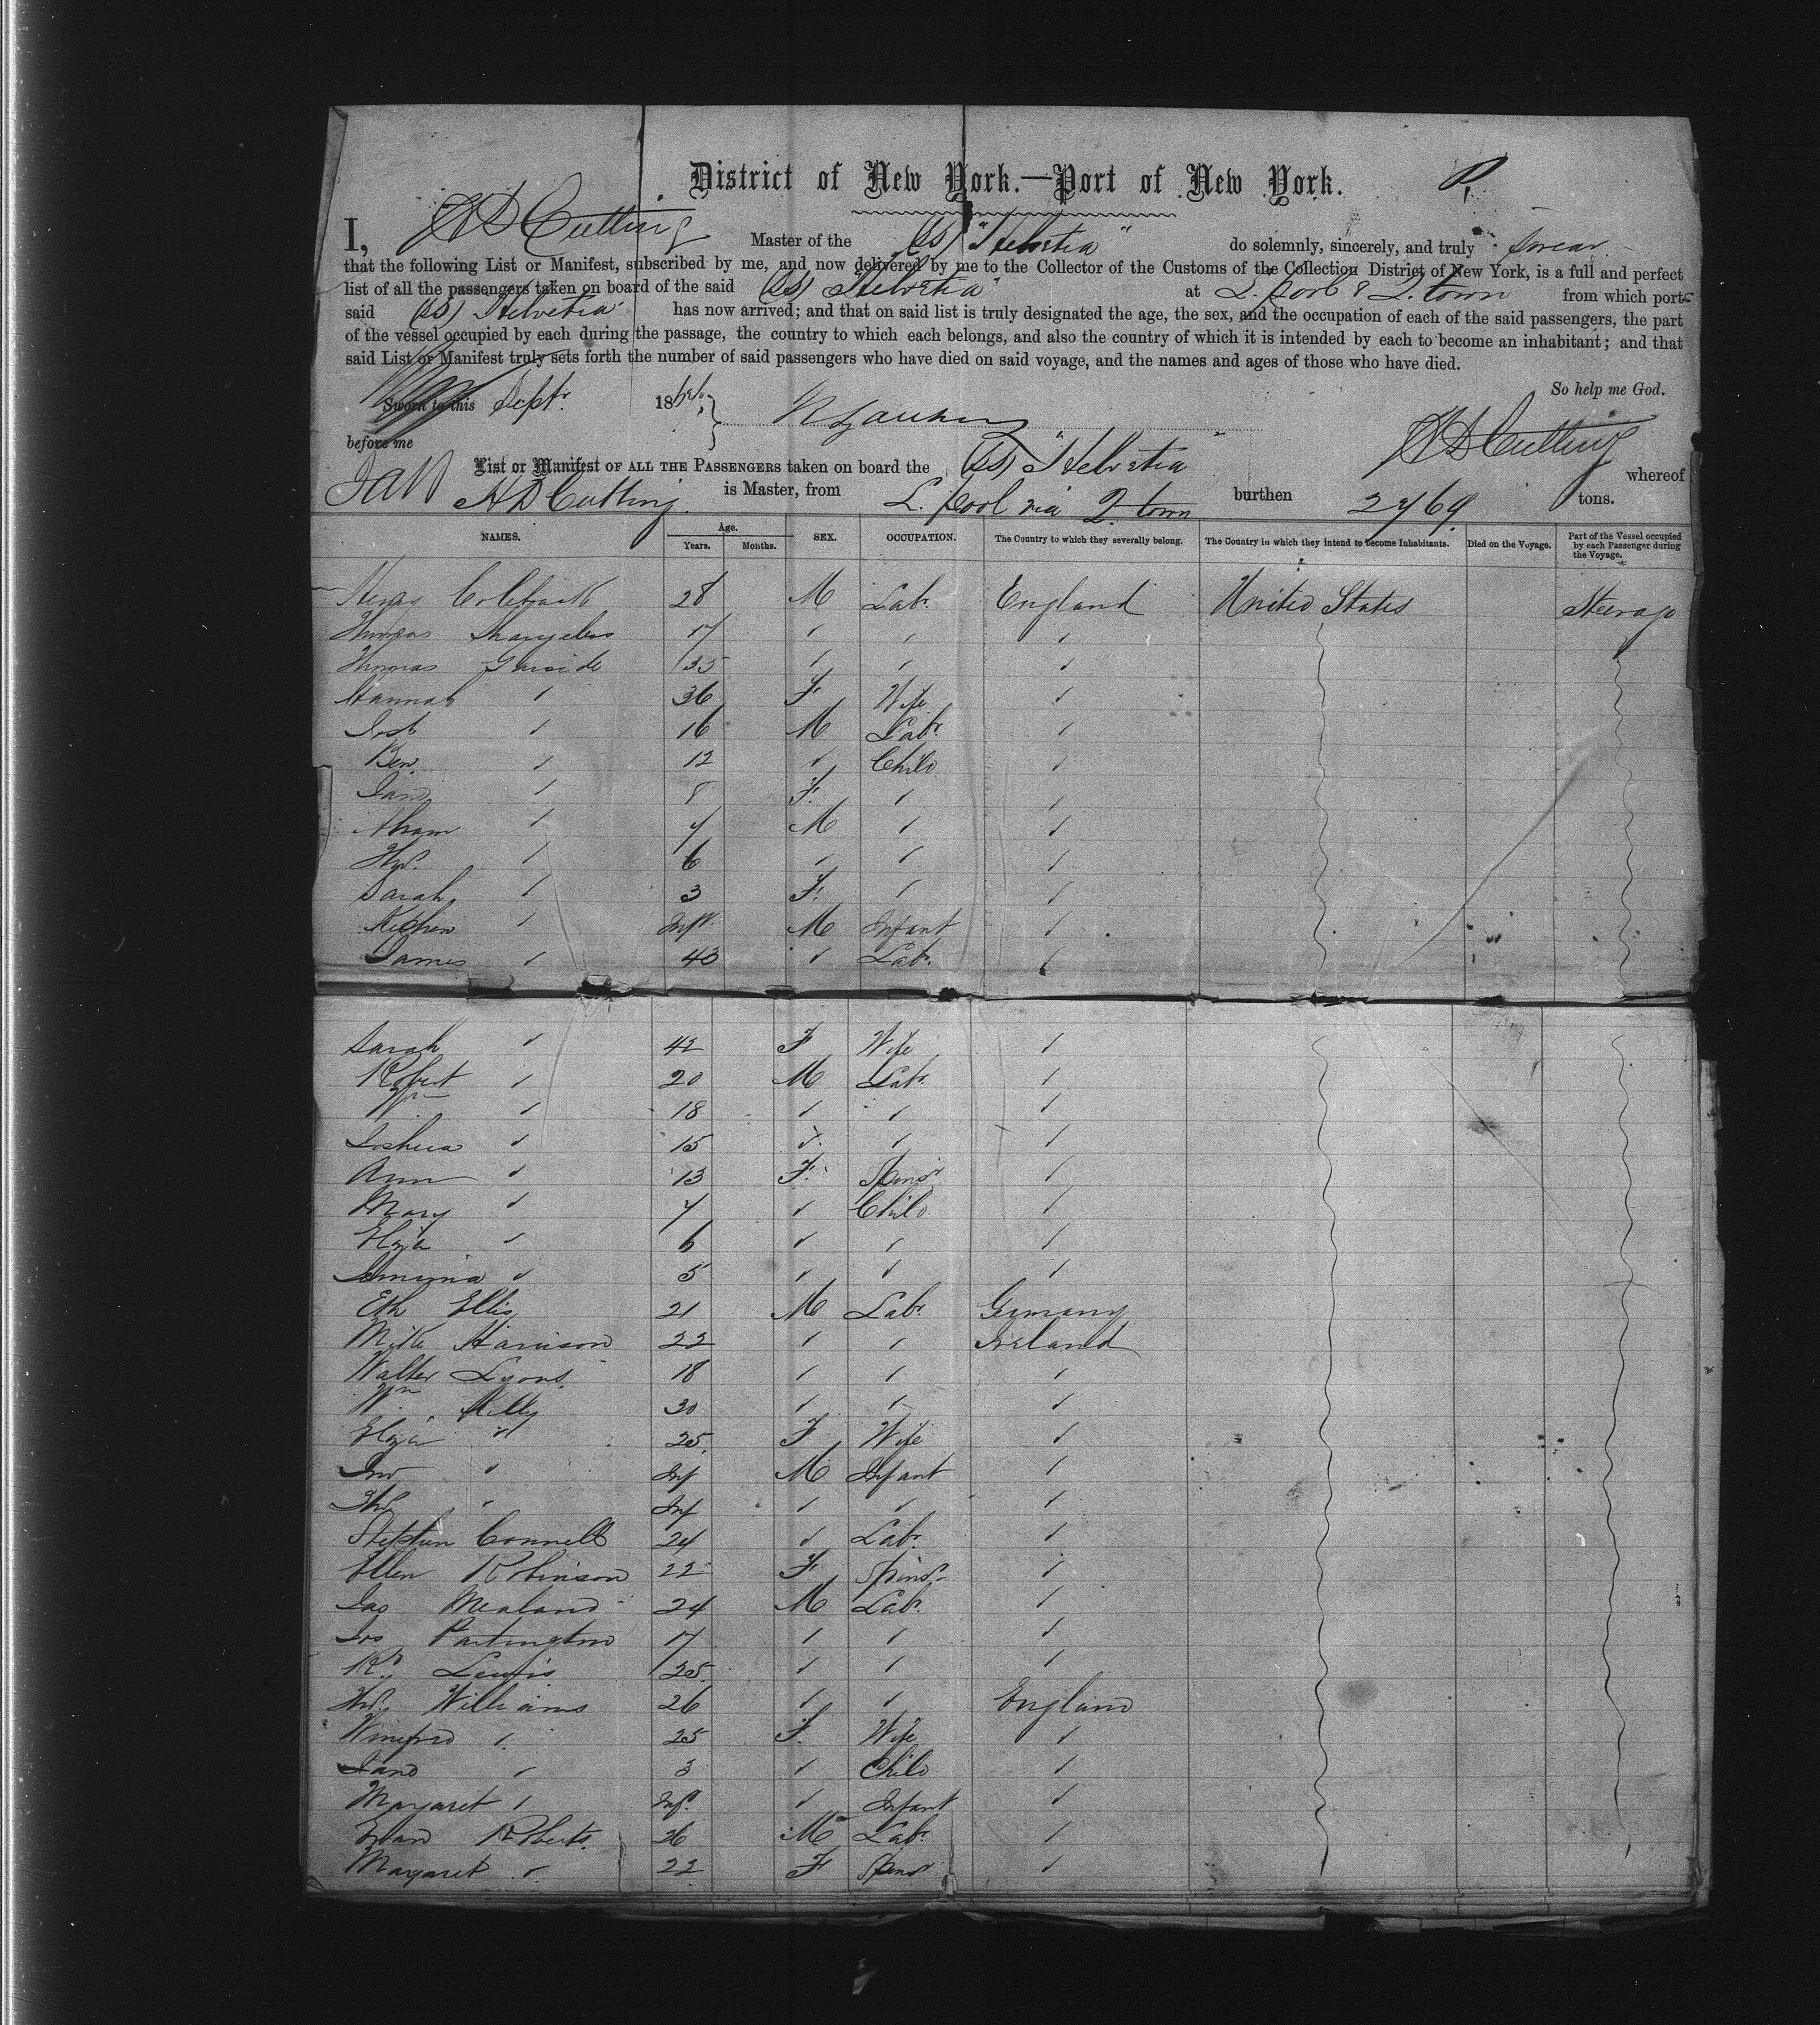 District of New York.—Port of New York.
I, H D Cutting Master of the (SS) "Helvetia" do solemnly, sincerely, and truly swear
that the following List or Manifest, subscribed by me, and now delivered by me to the Collector of the Customs of the Collection District of New York, is a full and perfect
list of all the passengers taken on board of the said (SS) "Helvetia" at L.pool & Q.town from which port
said (SS) "Helvetia" has now arrived; and that on said list is truly designated the age, the sex, and the occupation of each of the said passengers, the part
of the vessel occupied by each during the passage, the country to which each belongs, and also the country of which it is intended by each to become an inhabitant; and that
said List or Manifest truly sets forth the number of said passengers who have died on said voyage, and the names and ages of those who have died.
So help me God.
Sworn to this Septr. 18
before me H D Cutting
List or Manifest OF ALL THE PASSENGERS taken on board the (SS) "Helvetia" whereof
H D Cutting is Master, from L.pool via Q.town burthen 2769 tons.
NAMES. Age. Years. Months. SEX. OCCUPATION. The Country to which they severally belong. The Country in which they intend to become Inhabitants. Died on the Voyage. Part of the Vessel occupied by each Passenger during the Voyage.
Henry 28 M Labr. England United States Steerage
Thomas 17 " " "
Thomas Garside 35 " " "
Hannah " 36 F Wife "
Josh " 16 M Labr. "
Ben. " 12 " Child "
Jane " 8 F. " "
Abram " 7 M " "
Thos. " 6 " " "
Sarah " 3 F. " "
" Inft. M Infant "
James " 43 " Labr. "
Sarah " 42 F Wife "
Robert " 20 M Labr. "
Wm " 18 " " "
Joshua " 15 " " "
Ann " 13 F. Spinsr "
Mary " 7 " Child "
Eliza " 6 " " "
Jemima " 5 " " "
Eth Ellis 21 M Labr. Germany
Mike Harrison 22 " " Ireland
Walter Lyons 18 " " "
Wm Kelly 30 " " "
Eliza " 25 F Wife "
Jno " Inf M Infant "
Thos " Inf " " "
Stephen Connell 24 " Labr. "
Ellen Robinson 22 F Spinsr "
Jas Mealand 24 M Labr. "
Jos Partington 17 " " "
Rd. Lewis 25 " " "
Thos. Williams 26 " " England
Winifred " 25 F. Wife "
Jane " 3 " Child "
Margaret " Inft. " Infant "
Evan Roberts 26 M Labr. "
Margaret " 22 F Spinsr "